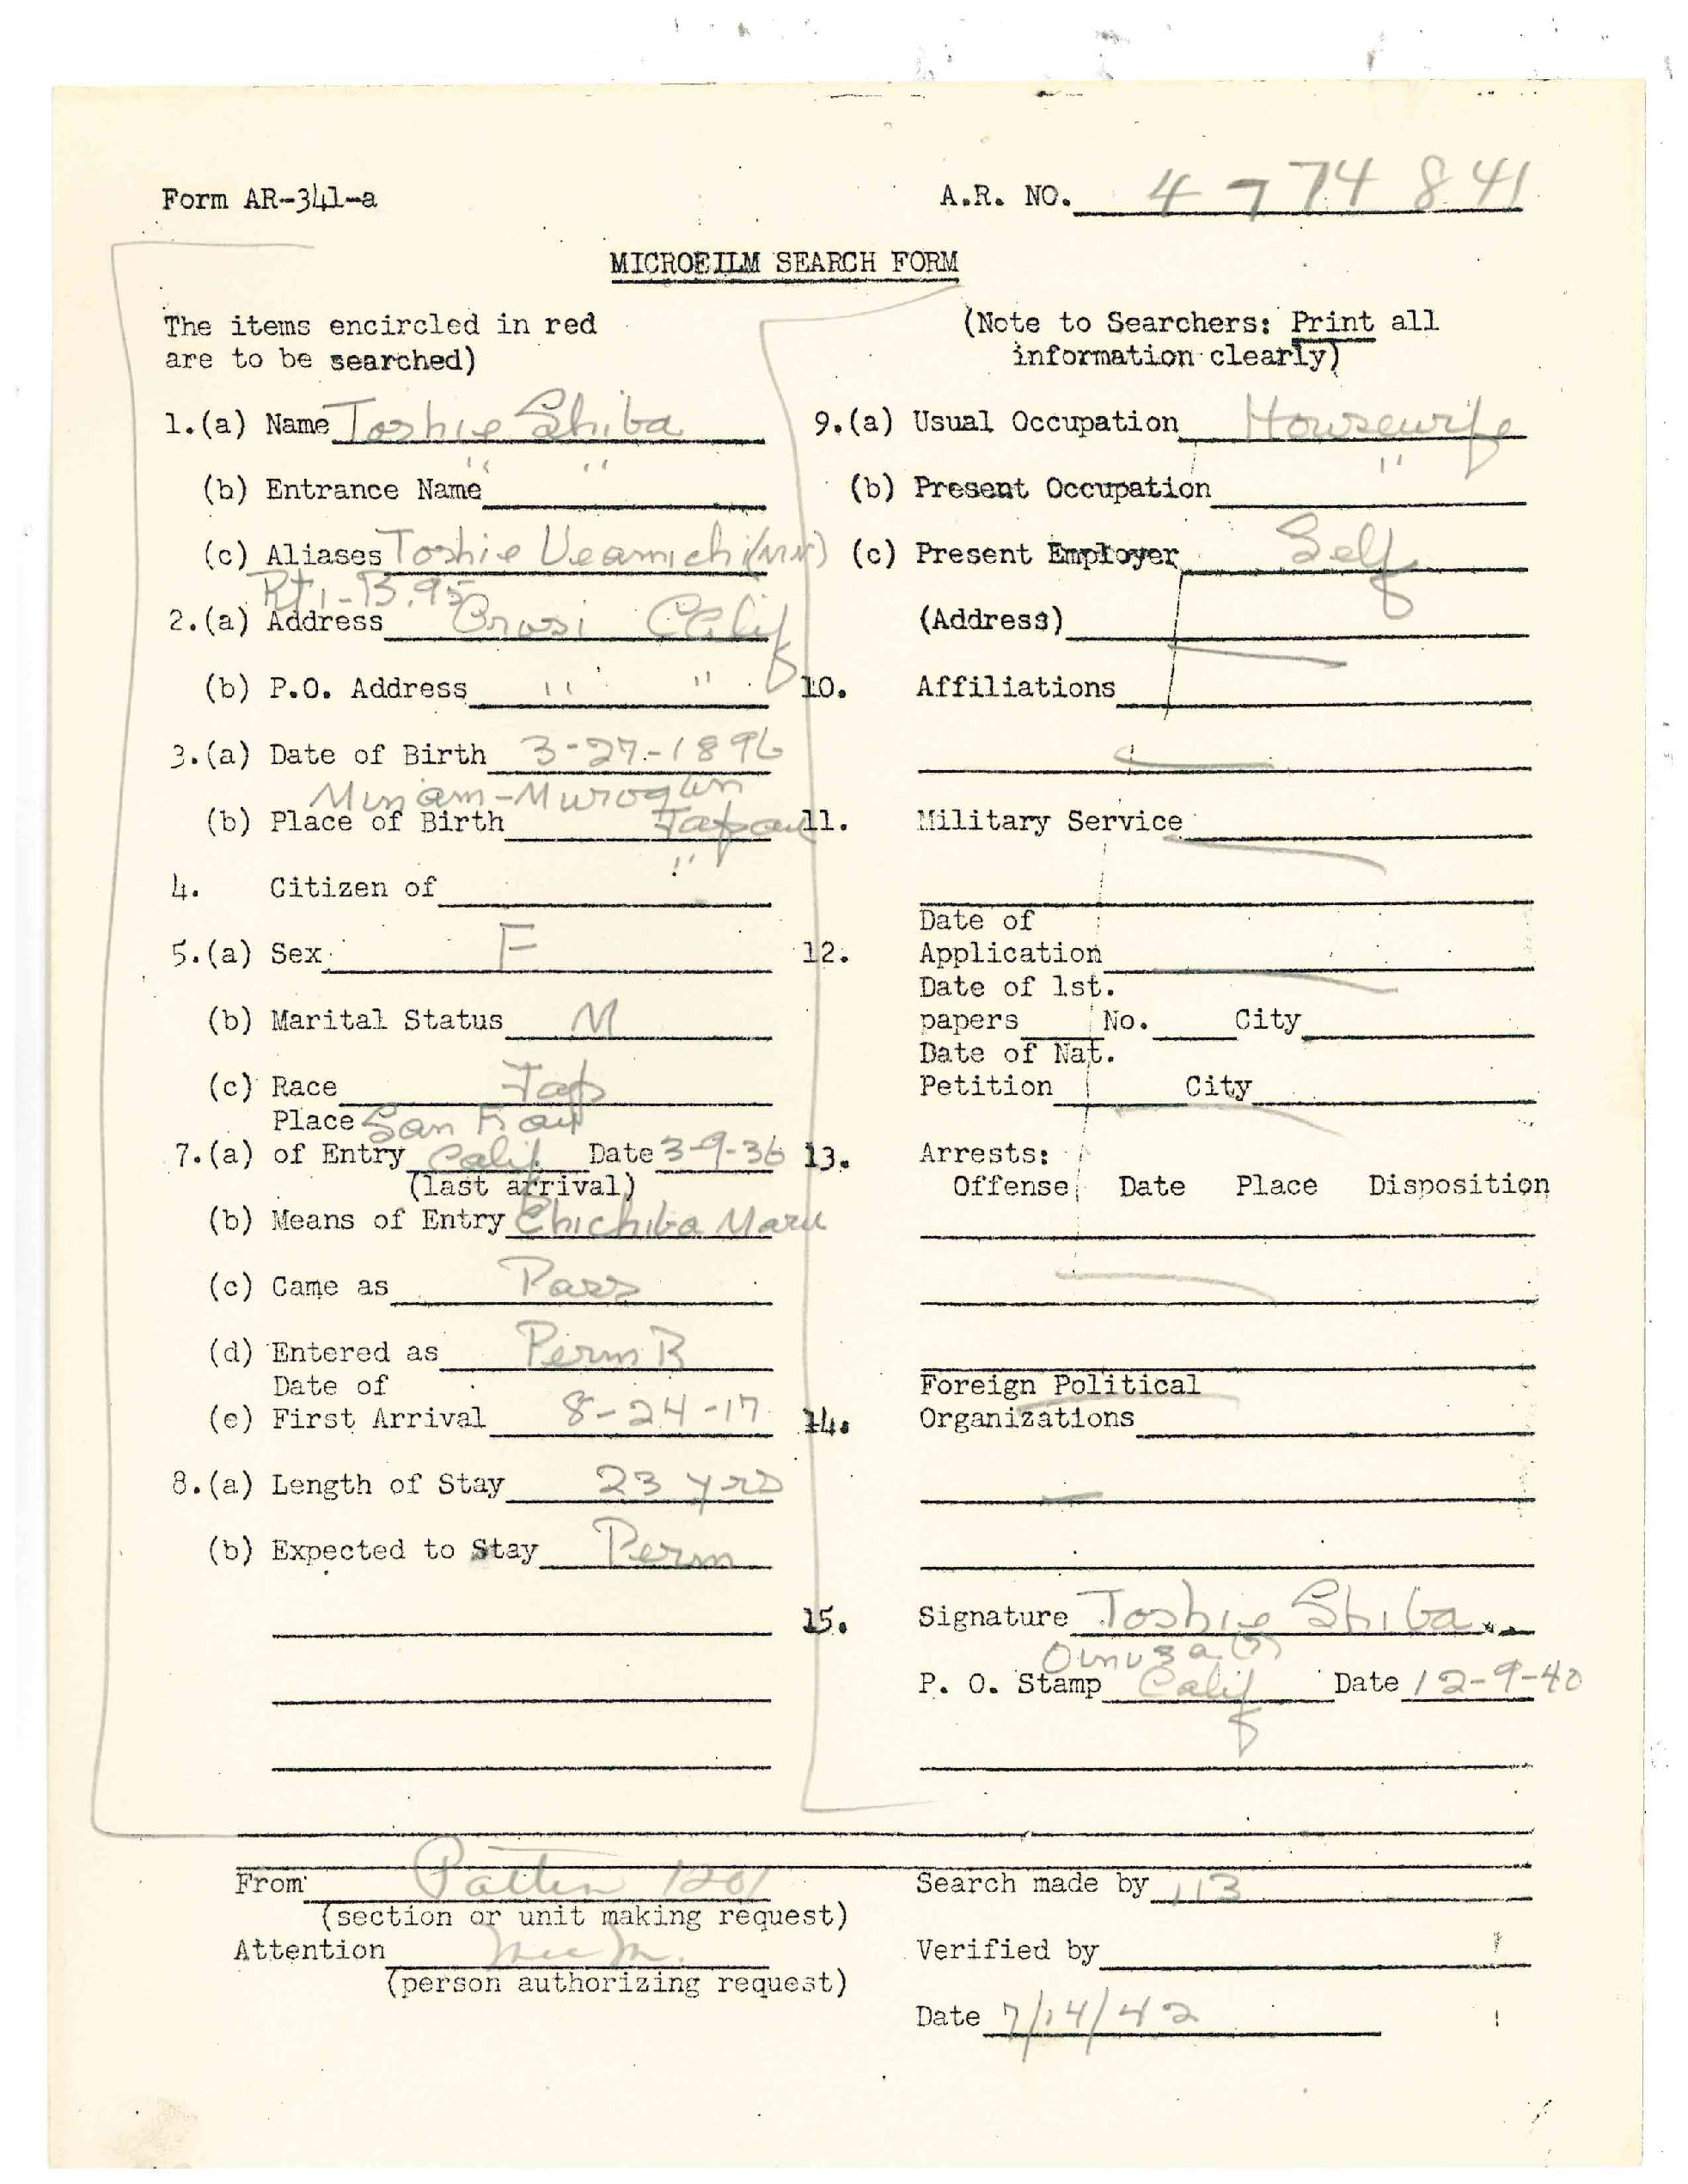 Form AR-341-a
A.R. NO. 4774841
MICROFILM SEARCH FORM
The items encircled in red
are to be searched)
(Note to Searchers: Print all
information clearly)
1.(a) Name Toshie Shiba
(b) Entrance Name " "
(c) Aliases Toshie Ueamichi (MN)
Rt 1-B.95
2.(a) Address Orosi Calif
(b) P.O. Address " "
3.(a) Date of Birth 3-27-1896
Minam-Murogun
(b) Place of Birth Japan
4. Citizen of "
5.(a) Sex F
(b) Marital Status M
(c) Race Jap
Place San Fran
7.(a) of Entry Calif. Date 3-9-36
(last arrival)
(b) Means of Entry Chichiba Maru
(c) Came as Pass
(d) Entered as Perm R
Date of
(e) First Arrival 8-24-17
8.(a) Length of Stay 23 yrs
(b) Expected to Stay Perm
9.(a) Usual Occupation Housewife
(b) Present Occupation "
(c) Present Employer Self
(Address)
10. Affiliations
11. Military Service
Date of
12. Application
Date of 1st.
papers No. City
Date of Nat.
Petition City
13. Arrests:
Offense Date Place Disposition
Foreign Political
14. Organizations
15. Signature Toshie Shiba
P. O. Stamp Calif Date 12-9-40
From Patten 1201
(section or unit making request)
Attention
(person authorizing request)
Search made by 113
Verified by
Date 7/14/42